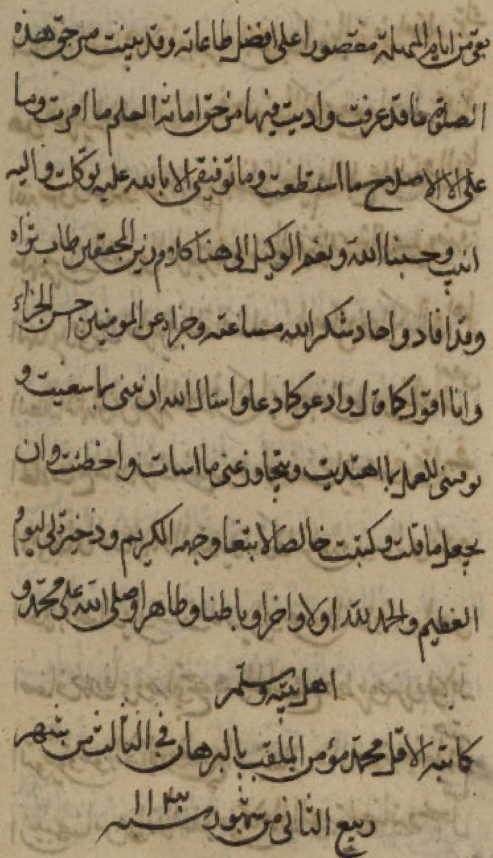 بقی من ایام المهلة مقصورا علی افضل طاعاته وقد بینت من حق هذه
الصلوة ما قد عرفت وادیت فیها من حق امانة العلم ما امرت وما
علی الا الاصلاح ما استطعت وما توفیقی الا بالله علیه توکلت والیه
انیب وحسبنا الله ونعم الوکیل الی هنا کلام زین المحققین طاب ثراه
وقد افاد واجاد شکر الله مساعیه وجزاه عن المومنین احسن الجزاء
وانا اقول کما قال وادعو کما دعا واسال الله ان یثیبنی بما سعیت و
یوفقنی للعمل بما اهتدیت ویتجاوز عنی ما اسات واخطئت وان
یجعل ما قلت وکتبت خالصا لابتغاء وجهه الکریم وذخیرة لی لیوم
العظیم والحمد لله اولا واخرا وباطنا وظاهرا وصلی الله علی محمد و
اهل بیته وسلم
کاتبه الاقل محمد مؤمن الملقب بالبرهان فی الثالث من شهر
ربیع الثانی من شهور سنه ۱۱۴۳